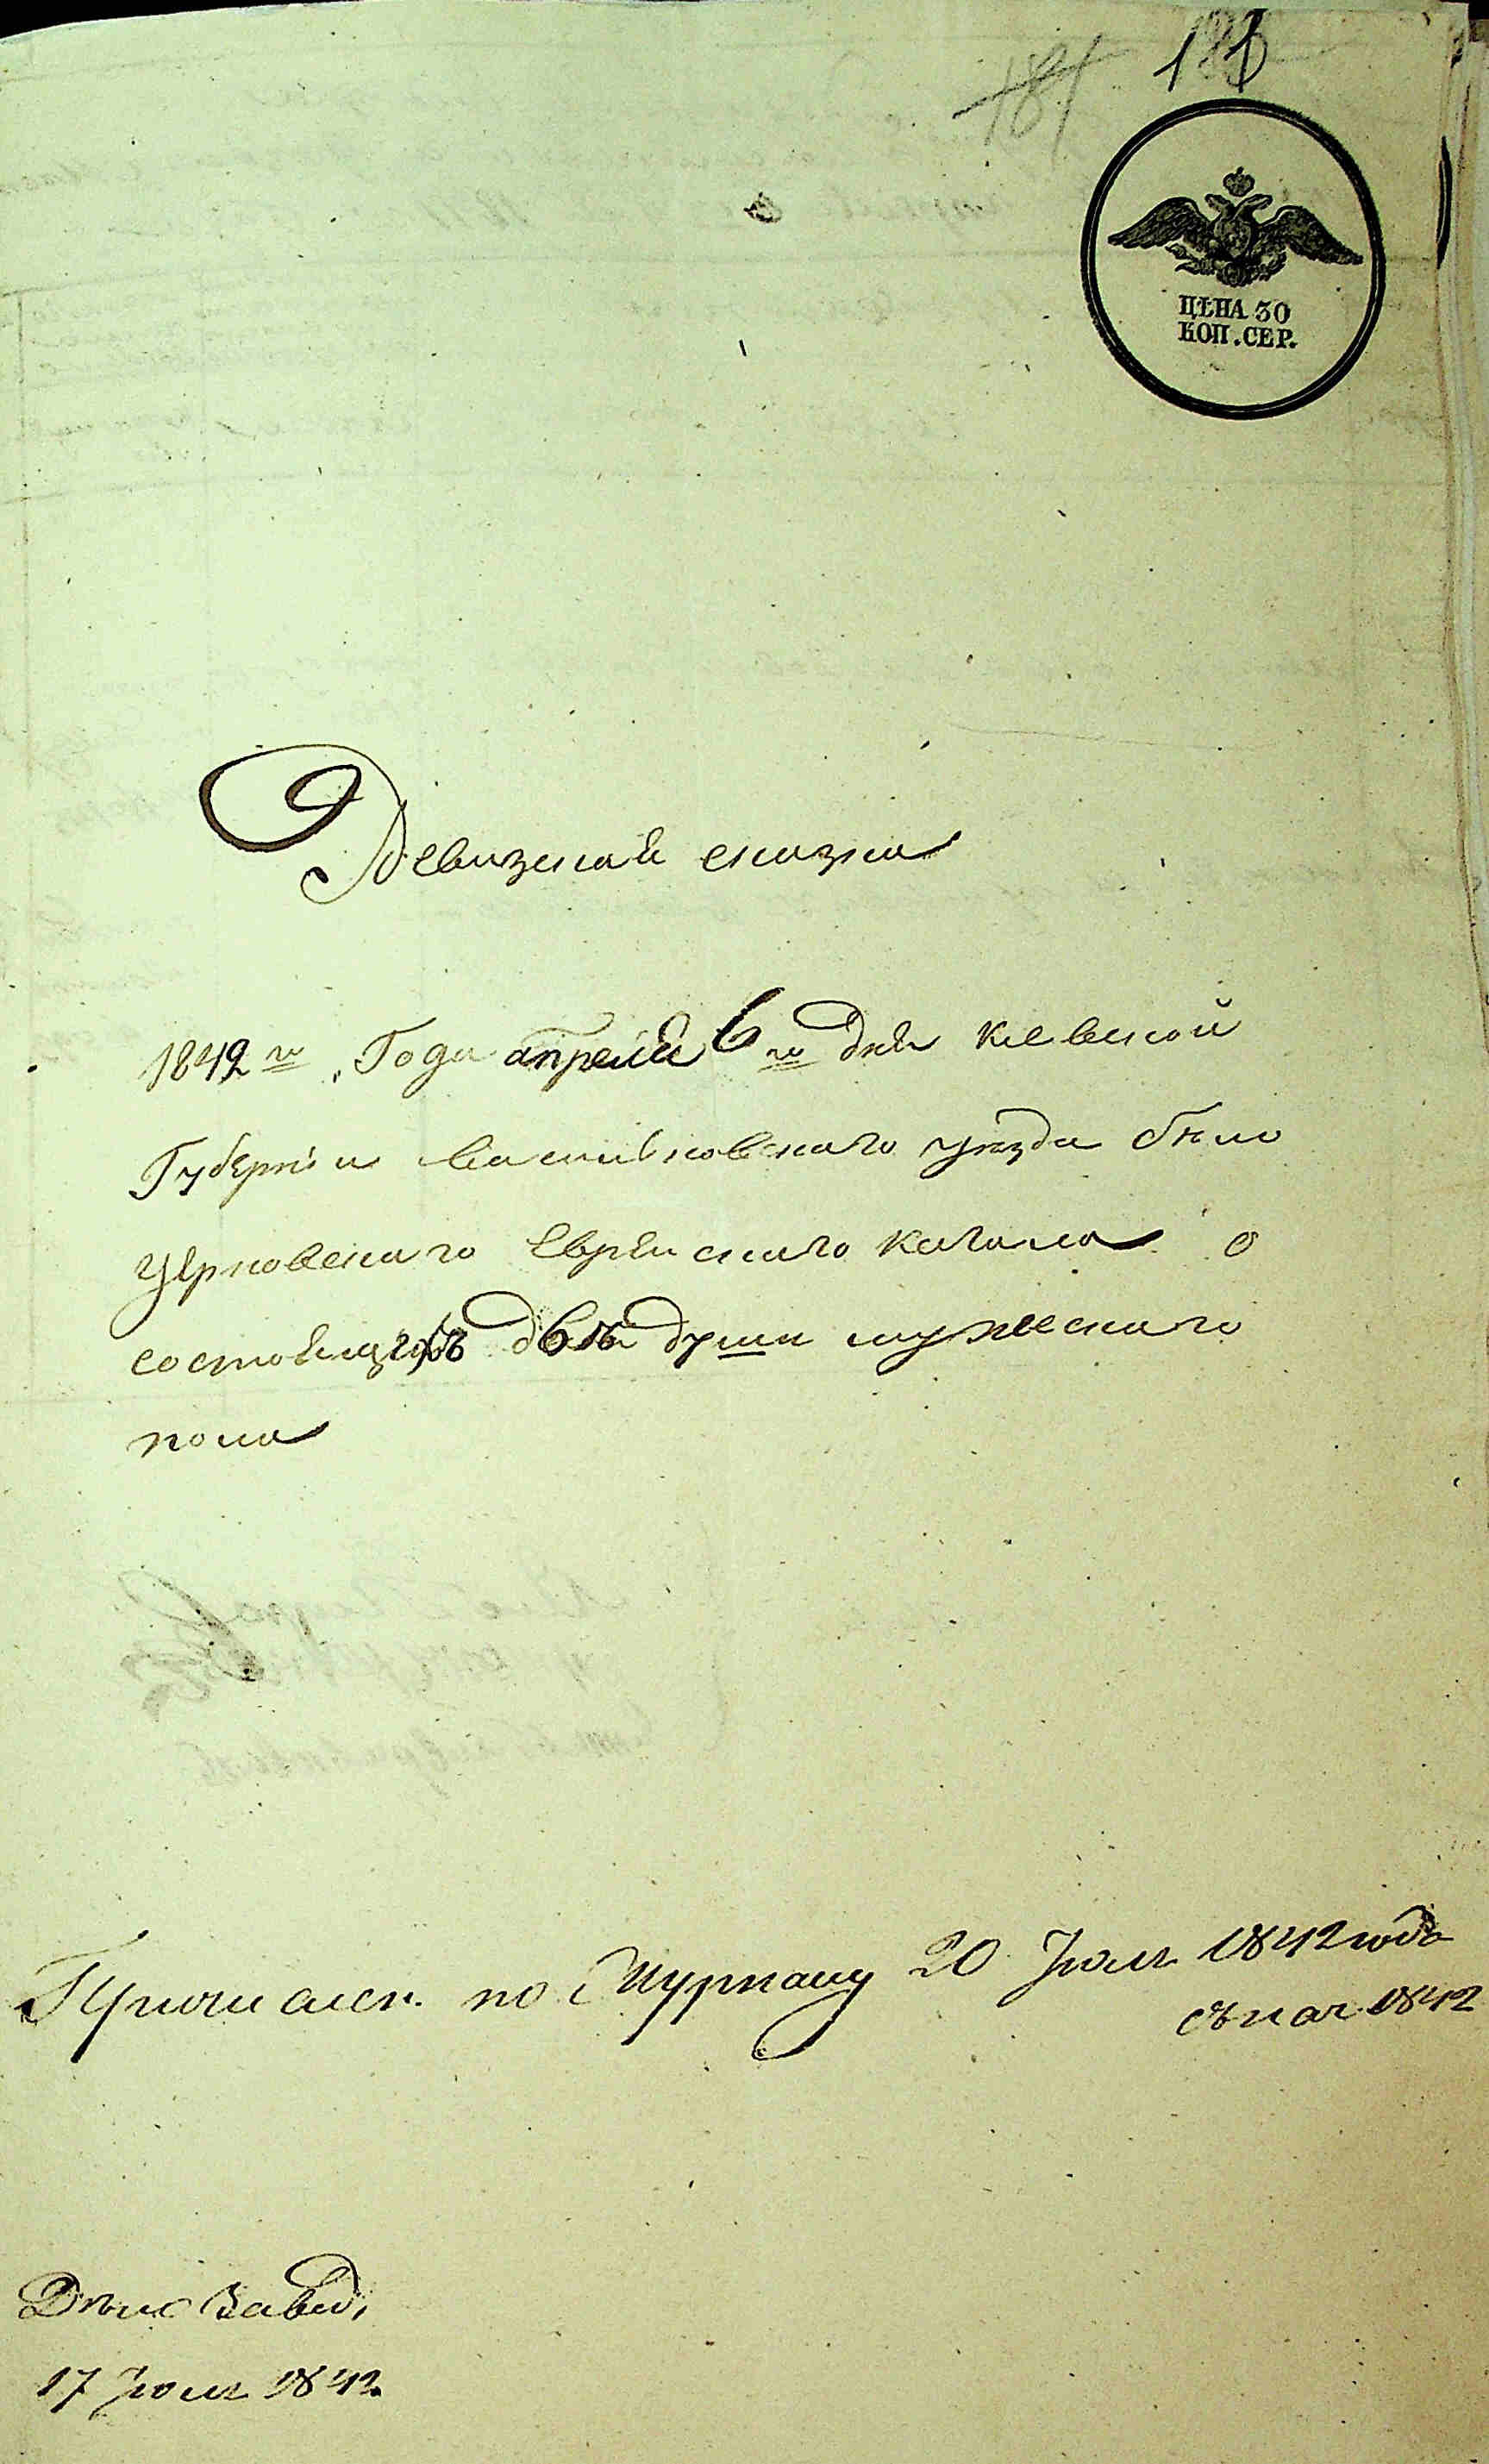 181
ЦѢНА 30
КОП. СЕР.
Ревизская сказка
1842го Года апреля 6го дня Киевской
Губернии васильковского уезда бѣло
церковскаго Еврейскаго кагала о
состоящихъ двѣ души мужескаго
пола
по Журналу 20 Июля 1842 года
съ 1842
17 Июля 1842